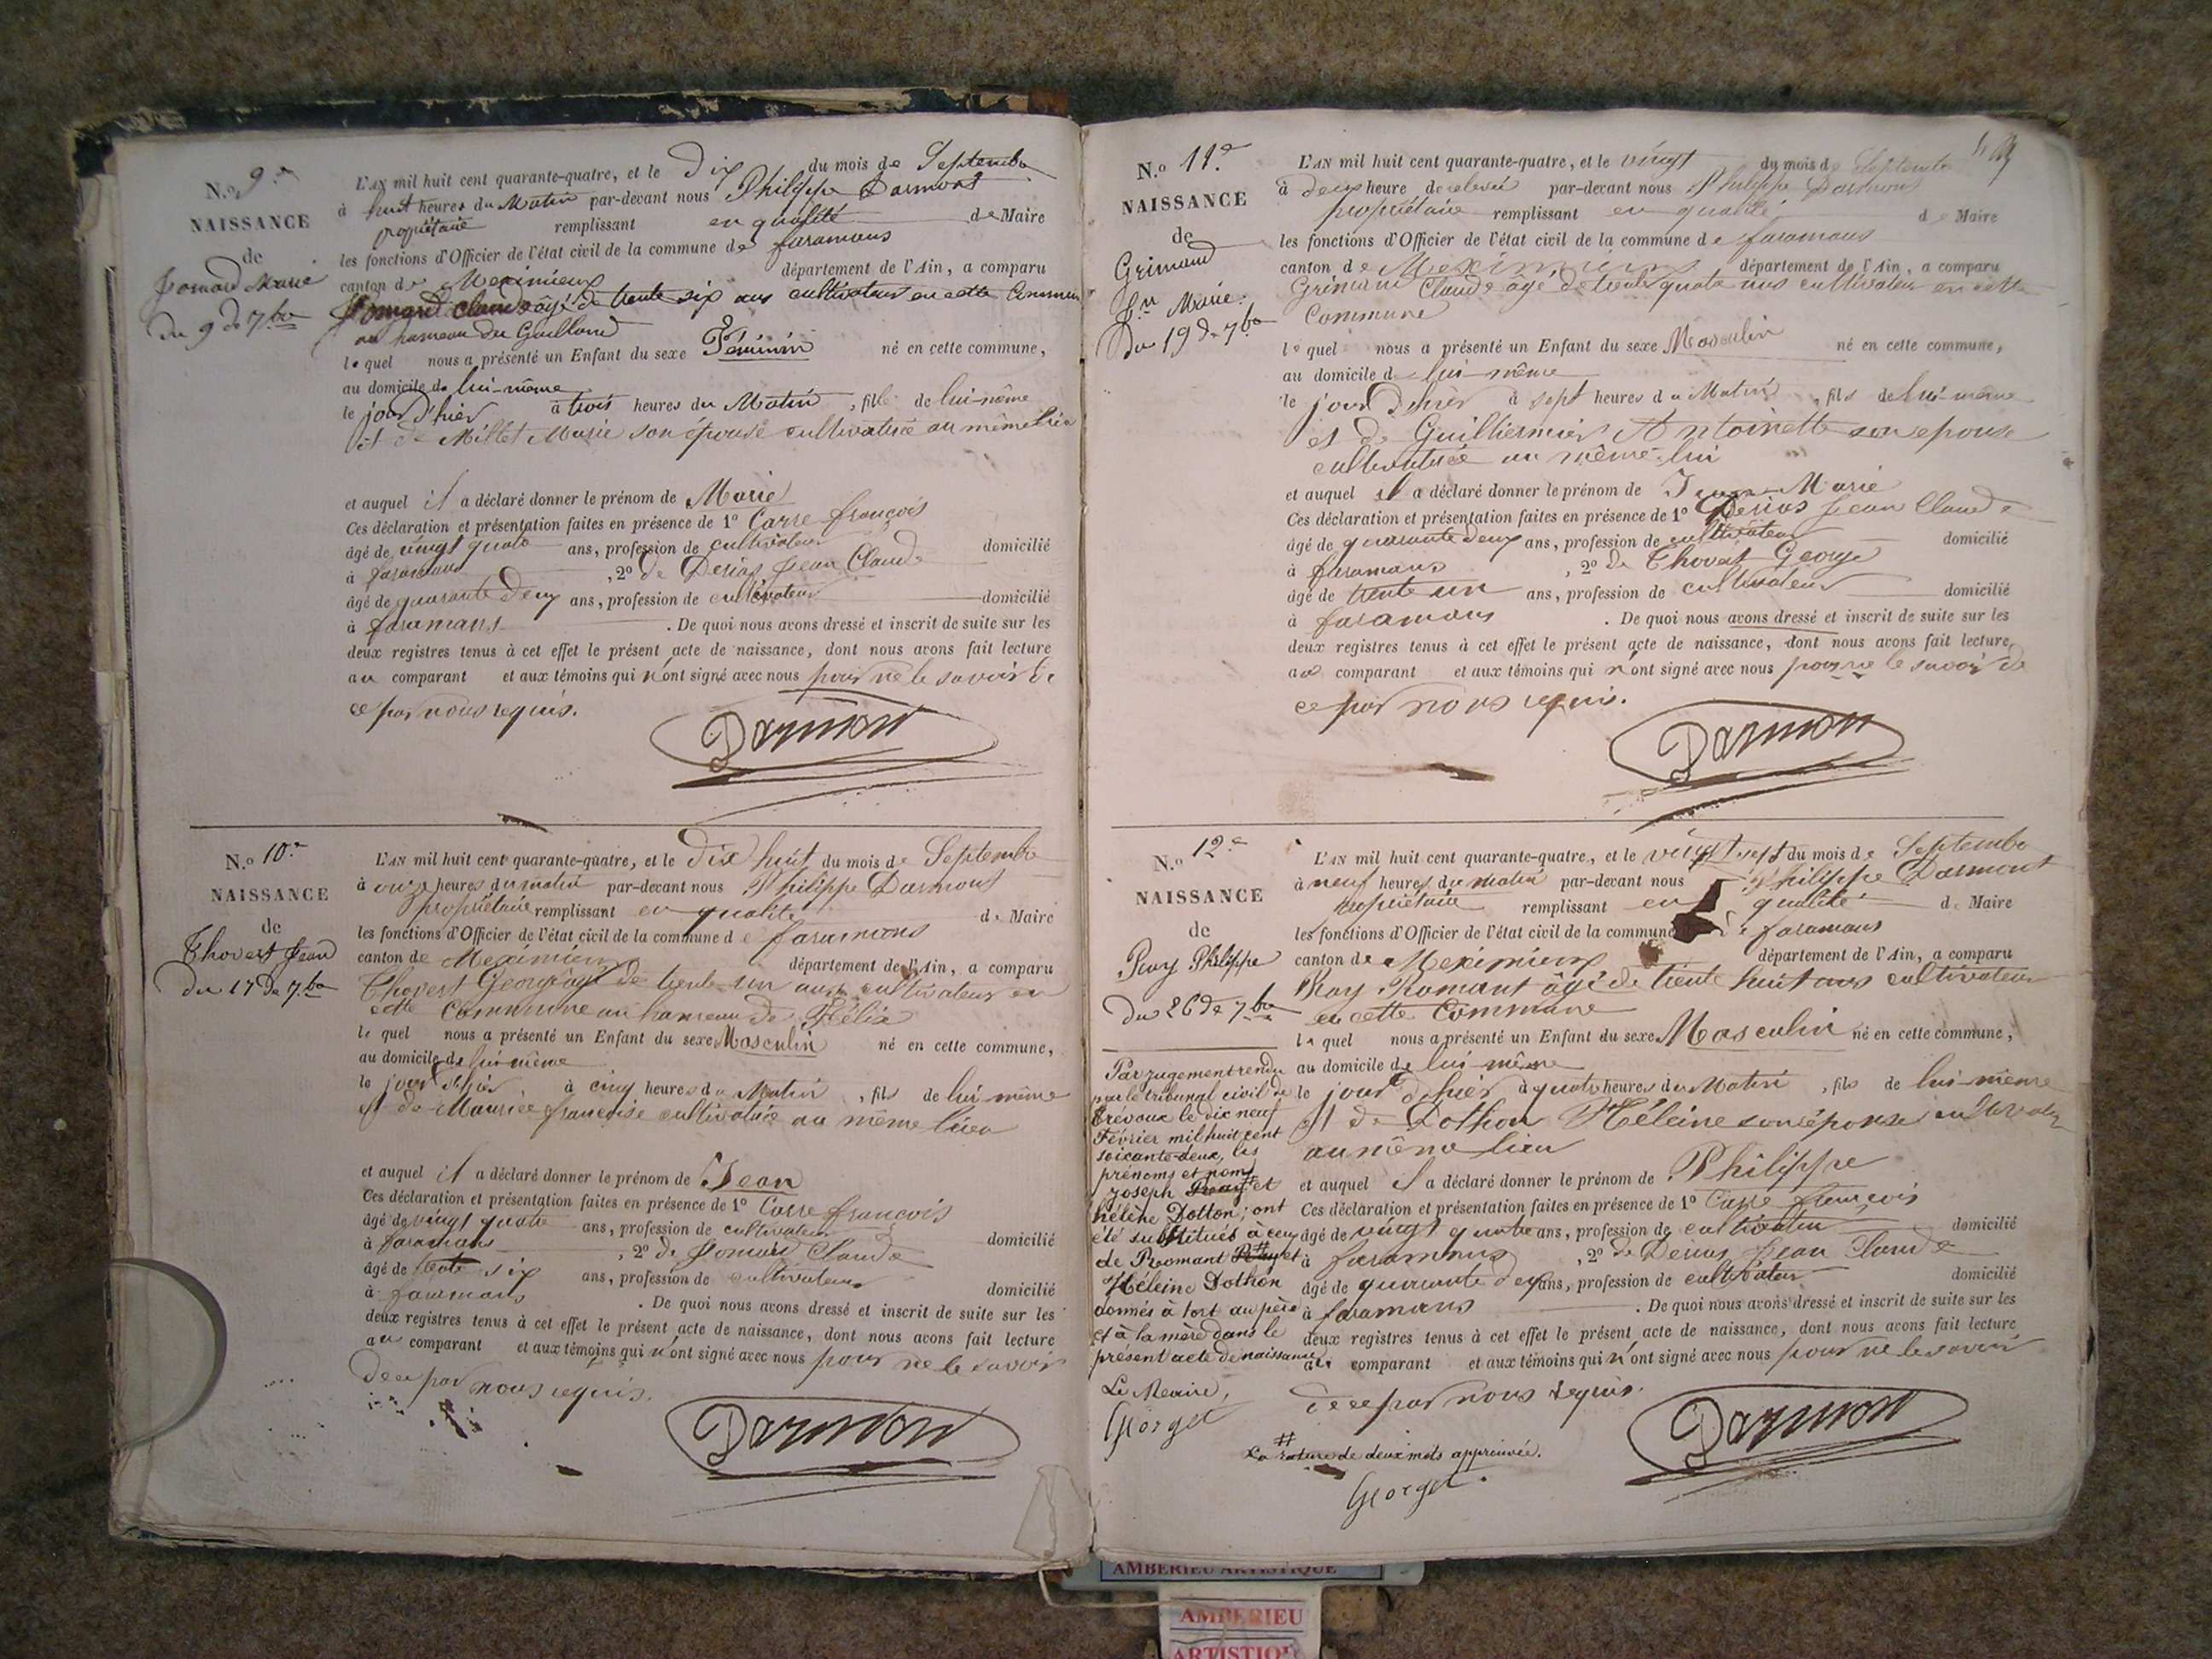 N.o 9.e
NAISSANCE
de
Jomard Marie
du 9 de 7.bre
L'AN mil huit cent quarante-quatre, et le Dix du mois de Septembre
à huit heures du Matin par-devant nous Philippe Darmont
propriétaire remplissant en qualité de Maire
les fonctions d'Officier de l'état civil de la commune de faramans
canton de Meximieux département de l'Ain, a comparu
Jomard Claude âgé de trente six ans cultivateur en cette Commune
au hameau du Guilland
lequel nous a présenté un Enfant du sexe Féminin né en cette commune,
au domicile de lui-même
le jour d'hier à trois heures du Matin, fille de lui-même
et de Millet Marie son épouse cultivatrice au même lieu
et auquel il a déclaré donner le prénom de Marie
Ces déclaration et présentation faites en présence de 1o Carre françois
âgé de vingt quatre ans, profession de cultivateur domicilié
à faramans, 2o de Derias Jean Claude
âgé de quarante deux ans, profession de cultivateur domicilié
à faramans. De quoi nous avons dressé et inscrit de suite sur les
deux registres tenus à cet effet le présent acte de naissance, dont nous avons fait lecture
au comparant et aux témoins qui n'ont signé avec nous pour ne le savoir de
ce par nous requis.
Darmont
N.o 10.e
NAISSANCE
de
Thovert Jean
du 17 de 7.bre
L'AN mil huit cent quarante-quatre, et le Dix huit du mois de Septembre
à onze heures du matin par-devant nous Philippe Darmont
propriétaire remplissant en qualité de Maire
les fonctions d'Officier de l'état civil de la commune de faramans
canton de Meximieux département de l'Ain, a comparu
Thovert George âgé de trente-un ans cultivateur en
cette Commune au hameau de Félix
lequel nous a présenté un Enfant du sexe Masculin né en cette commune,
au domicile de lui-même
le jour d'hier à cinq heures du Matin, fils de lui-même
et de Maurice françoise cultivatrice au même lieu
et auquel il a déclaré donner le prénom de Jean
Ces déclaration et présentation faites en présence de 1o Carre françois
âgé de vingt quatre ans, profession de cultivateur domicilié
à faramans, 2o de Jomard Claude
âgé de trente six ans, profession de cultivateur domicilié
à faramans. De quoi nous avons dressé et inscrit de suite sur les
deux registres tenus à cet effet le présent acte de naissance, dont nous avons fait lecture
au comparant et aux témoins qui n'ont signé avec nous pour ne le savoir
de ce par nous requis.
Darmont
N.o 11.e
NAISSANCE
de
Grimand
Jn Marie
du 19 de 7.bre
L'AN mil huit cent quarante-quatre, et le vingt du mois de Septembre
à deux heure de relevée par-devant nous Philippe Darmont
propriétaire remplissant en qualité de Maire
les fonctions d'Officier de l'état civil de la commune de faramans
canton de Meximieux département de l'Ain, a comparu
Grimand Claude âgé de trente quatre ans cultivateur en cette
Commune
lequel nous a présenté un Enfant du sexe Masculin né en cette commune,
au domicile de lui-même
le jour d'hier à sept heures du Matin, fils de lui-même
et de Guilliermier Antoinette son epouse
cultivatrice au même lui
et auquel il a déclaré donner le prénom de Jean-Marie
Ces déclaration et présentation faites en présence de 1o Derias Jean Claude
âgé de quarante deux ans, profession de cultivateur domicilié
à faramans, 2o de Thovert George
âgé de trente un ans, profession de cultivateur domicilié
à faramans. De quoi nous avons dressé et inscrit de suite sur les
deux registres tenus à cet effet le présent acte de naissance, dont nous avons fait lecture,
au comparant et aux témoins qui n'ont signé avec nous pour ne le savoir de
ce par nous requis.
Darmont
N.o 12.e
NAISSANCE
de
Ray Philippe
du 26 de 7.bre
L'AN mil huit cent quarante-quatre, et le vingt sept du mois de Septembre
à neuf heures du matin par-devant nous Philippe Darmont
propriétaire remplissant en qualité de Maire
les fonctions d'Officier de l'état civil de la commune de faramans
canton de Meximieux département de l'Ain, a comparu
Ray Romant âgé de trente huit ans cultivateur
en cette Commune
lequel nous a présenté un Enfant du sexe Masculin né en cette commune,
au domicile de lui-même
le jour d'hier à quatre heures du Matin, fils de lui-même
et de Dothon Héleine son épouse cultivatrice
au même lieu
et auquel il a déclaré donner le prénom de Philippe
Ces déclaration et présentation faites en présence de 1o Carre françois
âgé de vingt quatre ans, profession de cultivateur domicilié
à faramans, 2o de Derias Jean Claude
âgé de quarante deux ans, profession de cultivateur domicilié
à faramans. De quoi nous avons dressé et inscrit de suite sur les
deux registres tenus à cet effet le présent acte de naissance, dont nous avons fait lecture
au comparant et aux témoins qui n'ont signé avec nous pour ne le savoir
de ce par nous requis.
Darmont
Par jugement rendu
par le tribunal civil de
Trévoux le dix neuf
Février mil huit cent
soixante-deux, les
prénoms et noms
Joseph Ray # et
hélène Dotton; ont
été substitués à ceux
de Romant Ray # et
Héleine Dothon
donnés à tort au père
et à la mère dans le
présent acte de naissance
Le Maire,
Georget
# La rature de deux mots approuvée.
Georget
AMBERIEU ARTISTIQUE
AMBERIEU
ARTISTIQUE